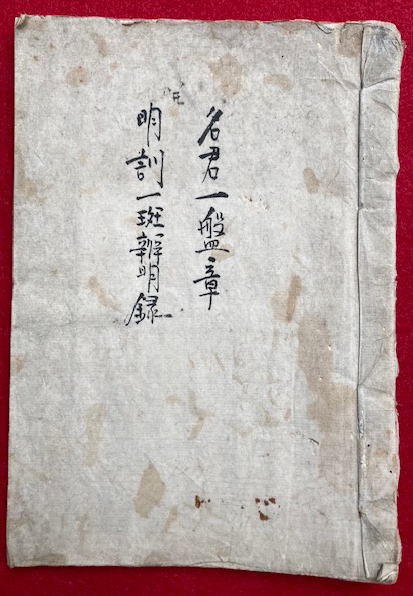 名君一盤章
明訓一斑辨明録